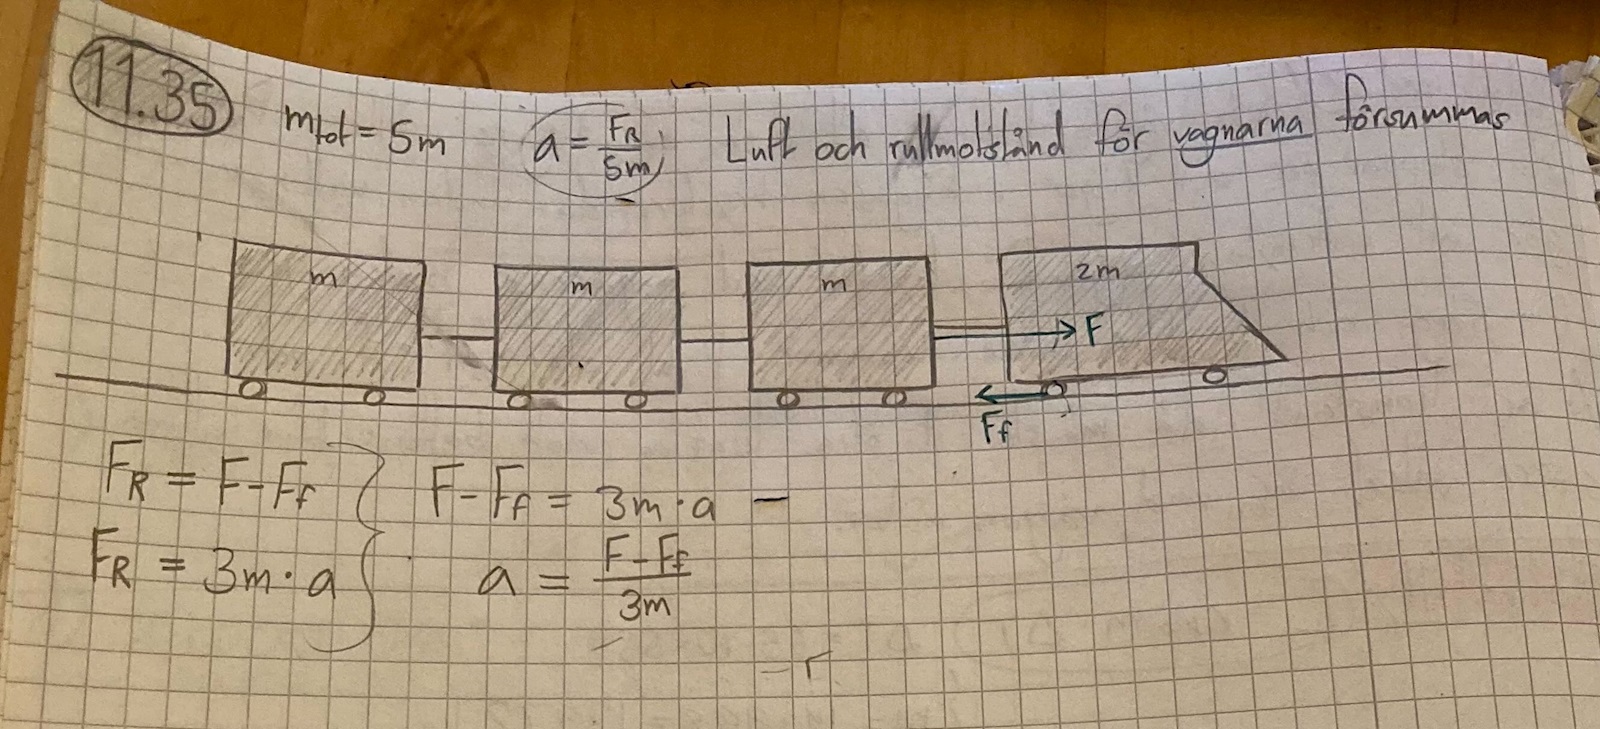 11.35
mtot = 5m a = FR/5m Luft och rullmotstånd för vagnarna försummas
m m m 2m
F
Ff
FR = F-Ff F-Ff = 3m·a –
FR = 3m·a a = F-Ff/3m